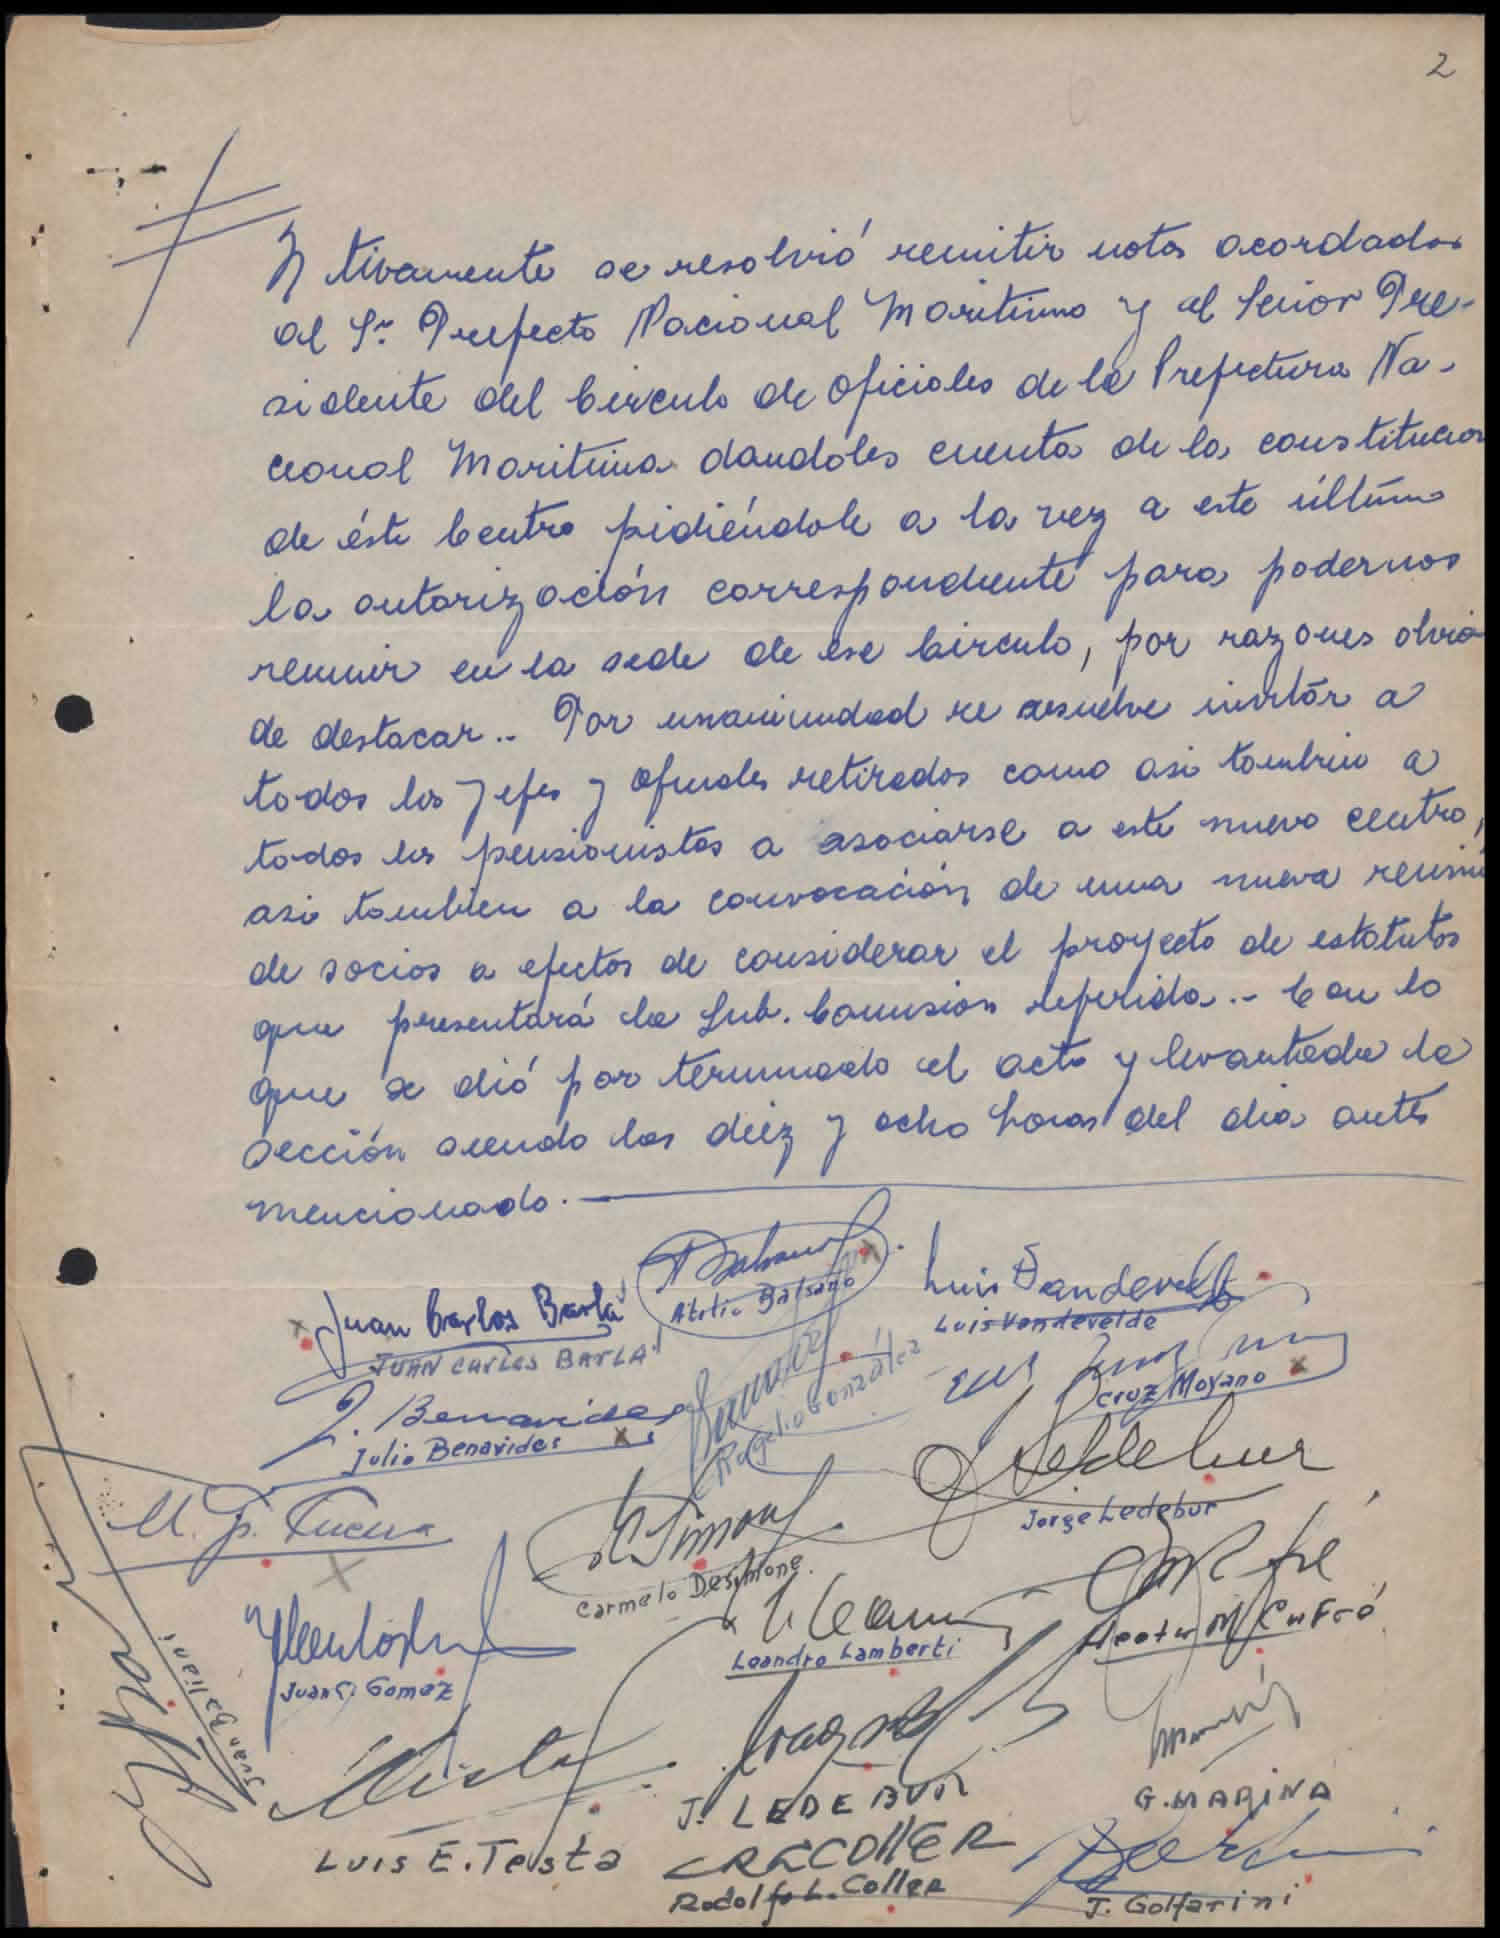 2
tivamente se resolvió remitir notas acordadas
al Sr. Prefecto Nacional Maritimo y al Señor Pre-
sidente del Circulo de Oficiales de la Prefectura Na-
cional Maritima dandoles cuenta de la constitucion
de éste Centro pidiéndole a la vez a este último
la autorización correspondiente para podernos
reunir en la sede de ese Circulo, por razones obvia
de destacar.- Por unanimidad se resuelve invitár a
todos los Jefes y oficiales retirados como asi tambien a
todos los pensionistas a asociarse a este nuevo centro,
asi tambien a la convocación de una nueva reunió
de socios a efectos de considerar el proyecto de estatutos
que presentará la Sub. Comision referida.- Con lo
que se dió por terminado el acto y levantada la
sección siendo las diez y ocho horas del dia antes
mencionado.-
Atilio Balsano
Luis Vandevelde
Luis Vandevelde
Juan Carlos Barla
JUAN CARLOS BARLA
Cruz Moyano
J. Benavides
Julio Benavides
Rogelio González
Ledebur
Jorge Ledebur
Carmelo Desimone.
Hector M. Cufré
Leandro Lamberti
Juan C. Gomez
Juan Galiani
J. LEDEBUR
G. MARINA
LUIS E. Testa
Rodolfo L. Coller
J. Golfarini